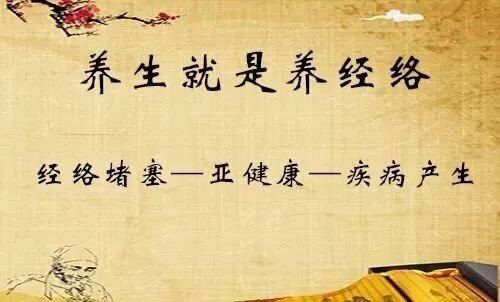 养生就是养经络
经络堵塞—亚健康—疾病产生